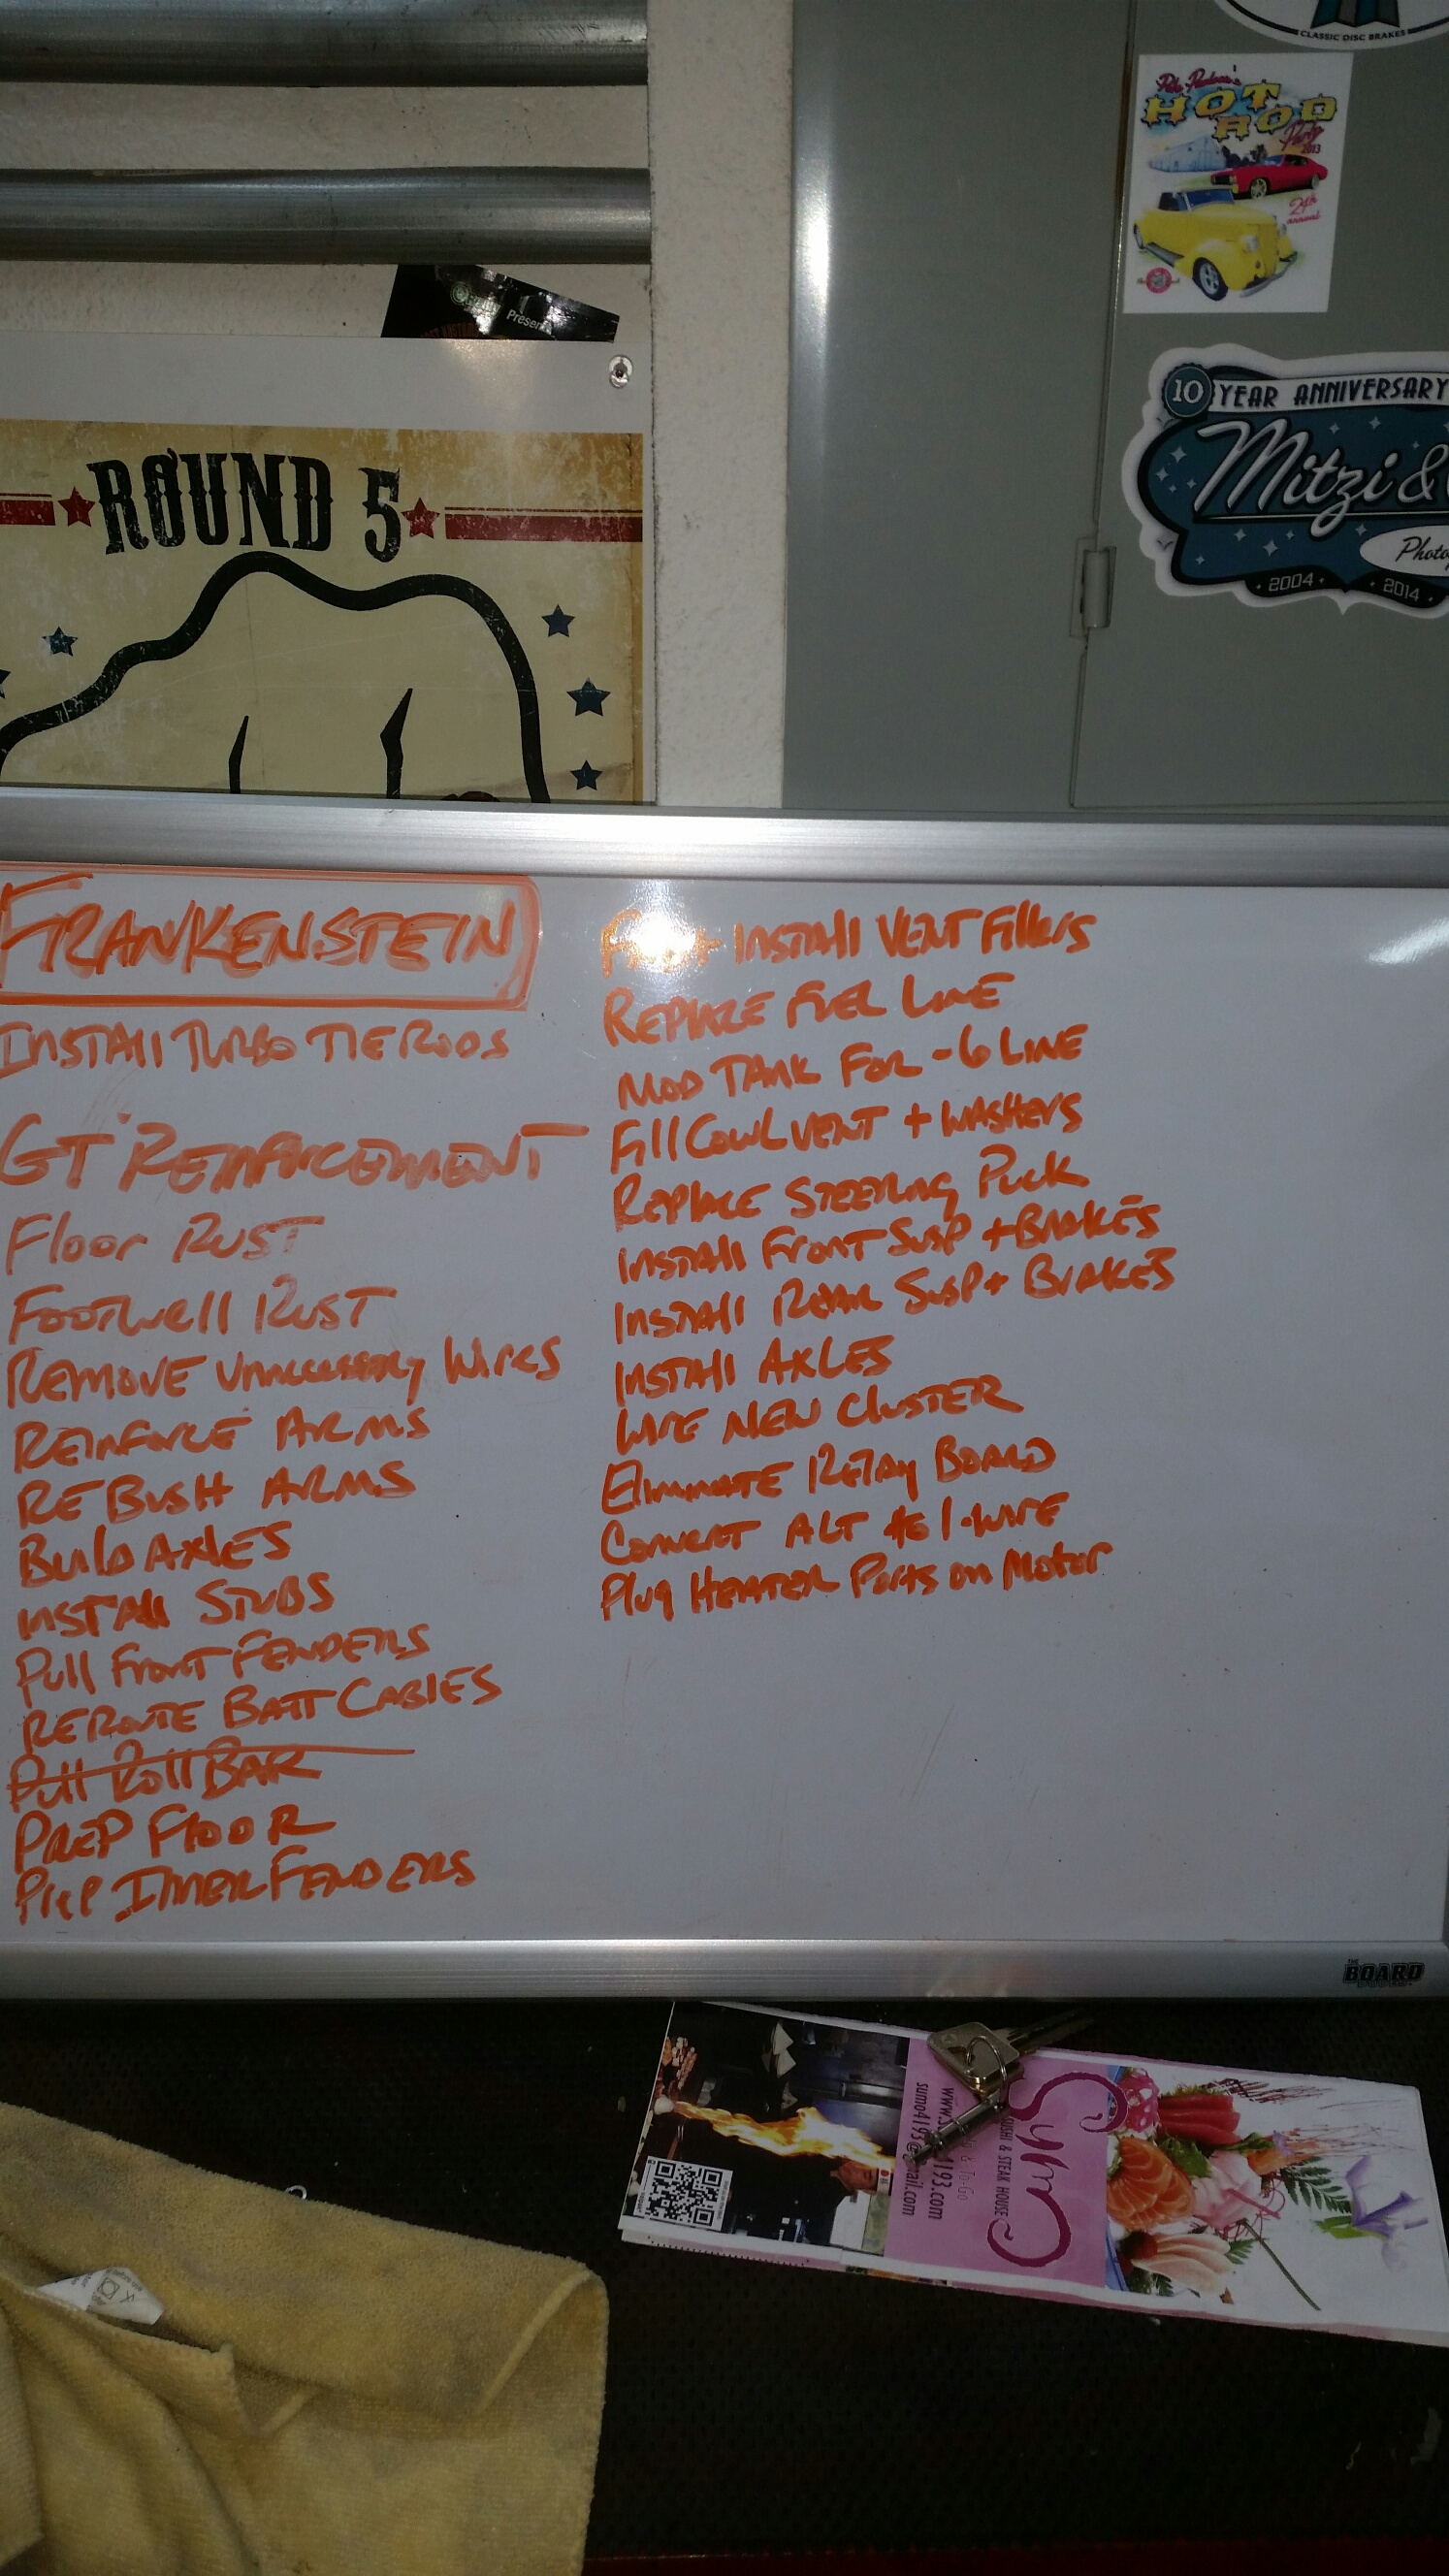 CLASSIC DISC BRAKES
HOT
ROD
Party
2013
24th
annual
Presen
ROUND 5
10 YEAR ANNIVERSARY
Mitzi &
Photo
2004 · 2014
FRANKENSTEIN
INSTAll TURBO TIE RODS
GT REINFORCEMENT
Floor RUST
Footwell RUST
REMOVE UNNECESSARY WIRES
REINFORCE ARMS
REBUSH ARMS
BUILD AXLES
INSTAll STUBS
Pull FRONT FENDERS
REROUTE BATT CABlES
Pull Roll BAR
PREP FlOOR
Prep INNER FENDERS
INSTAll VENT Fillers
REPlACE FUEL LINE
MOD TANK FOR -6 LINE
Fill COWL VENT + WASHERS
REPlACE STEERING PUCK
INSTAll FRONT SUSP + BRAKES
INSTAll REAR SUSP + BRAKES
INSTAll AXLES
WIRE NEW ClUSTER
ElIMINATE RElAy BOARD
CONVERT ALT to 1-WIRE
Plug HEATER Ports on Motor
THE
BOARD
Sumo
SUSHI & STEAK HOUSE
& To-Go
4193.com
sumo4193@gmail.com